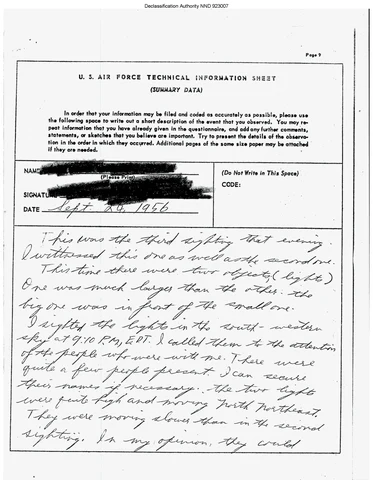 Declassification Authority NND 923007
Page 9
U. S. AIR FORCE TECHNICAL INFORMATION SHEET
(SUMMARY DATA)
In order that your information may be filed and coded as accurately as possible, please use
the following space to write out a short description of the event that you observed. You may re-
peat information that you have already given in the questionnaire, and add any further comments,
statements, or sketches that you believe are important. Try to present the details of the observa-
tion in the order in which they occurred. Additional pages of the same size paper may be attached
if they are needed.
NAME
(Please Print)
(Do Not Write in This Space)
CODE:
SIGNATU
DATE Sept 1956
This was the third sighting that evening
I witnessed this one as well as the second one.
This time there were two objects (lights)
One was much larger than the other. the
big one was in front of the small one.
I sighted the lights in the south-western
sky at 9:10 PM, EDT. I called them to the attention
of the people who were with me. There were
quite a few people present. I can secure
their names if necessary. the two lights
were quite high and moving North Northeast.
They were moving slower than in the second
sighting. In my opinion, they could